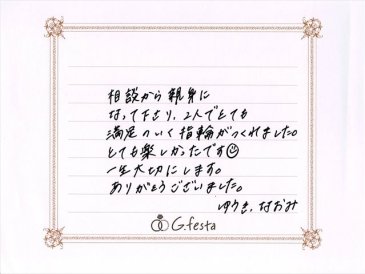 相談から親身に
なって下さり、2人でとても
満足のいく指輪がつくれました。
とても楽しかったです☺
一生大切にします。
ありがとうございました。
ゆうき、なおみ
G.festa